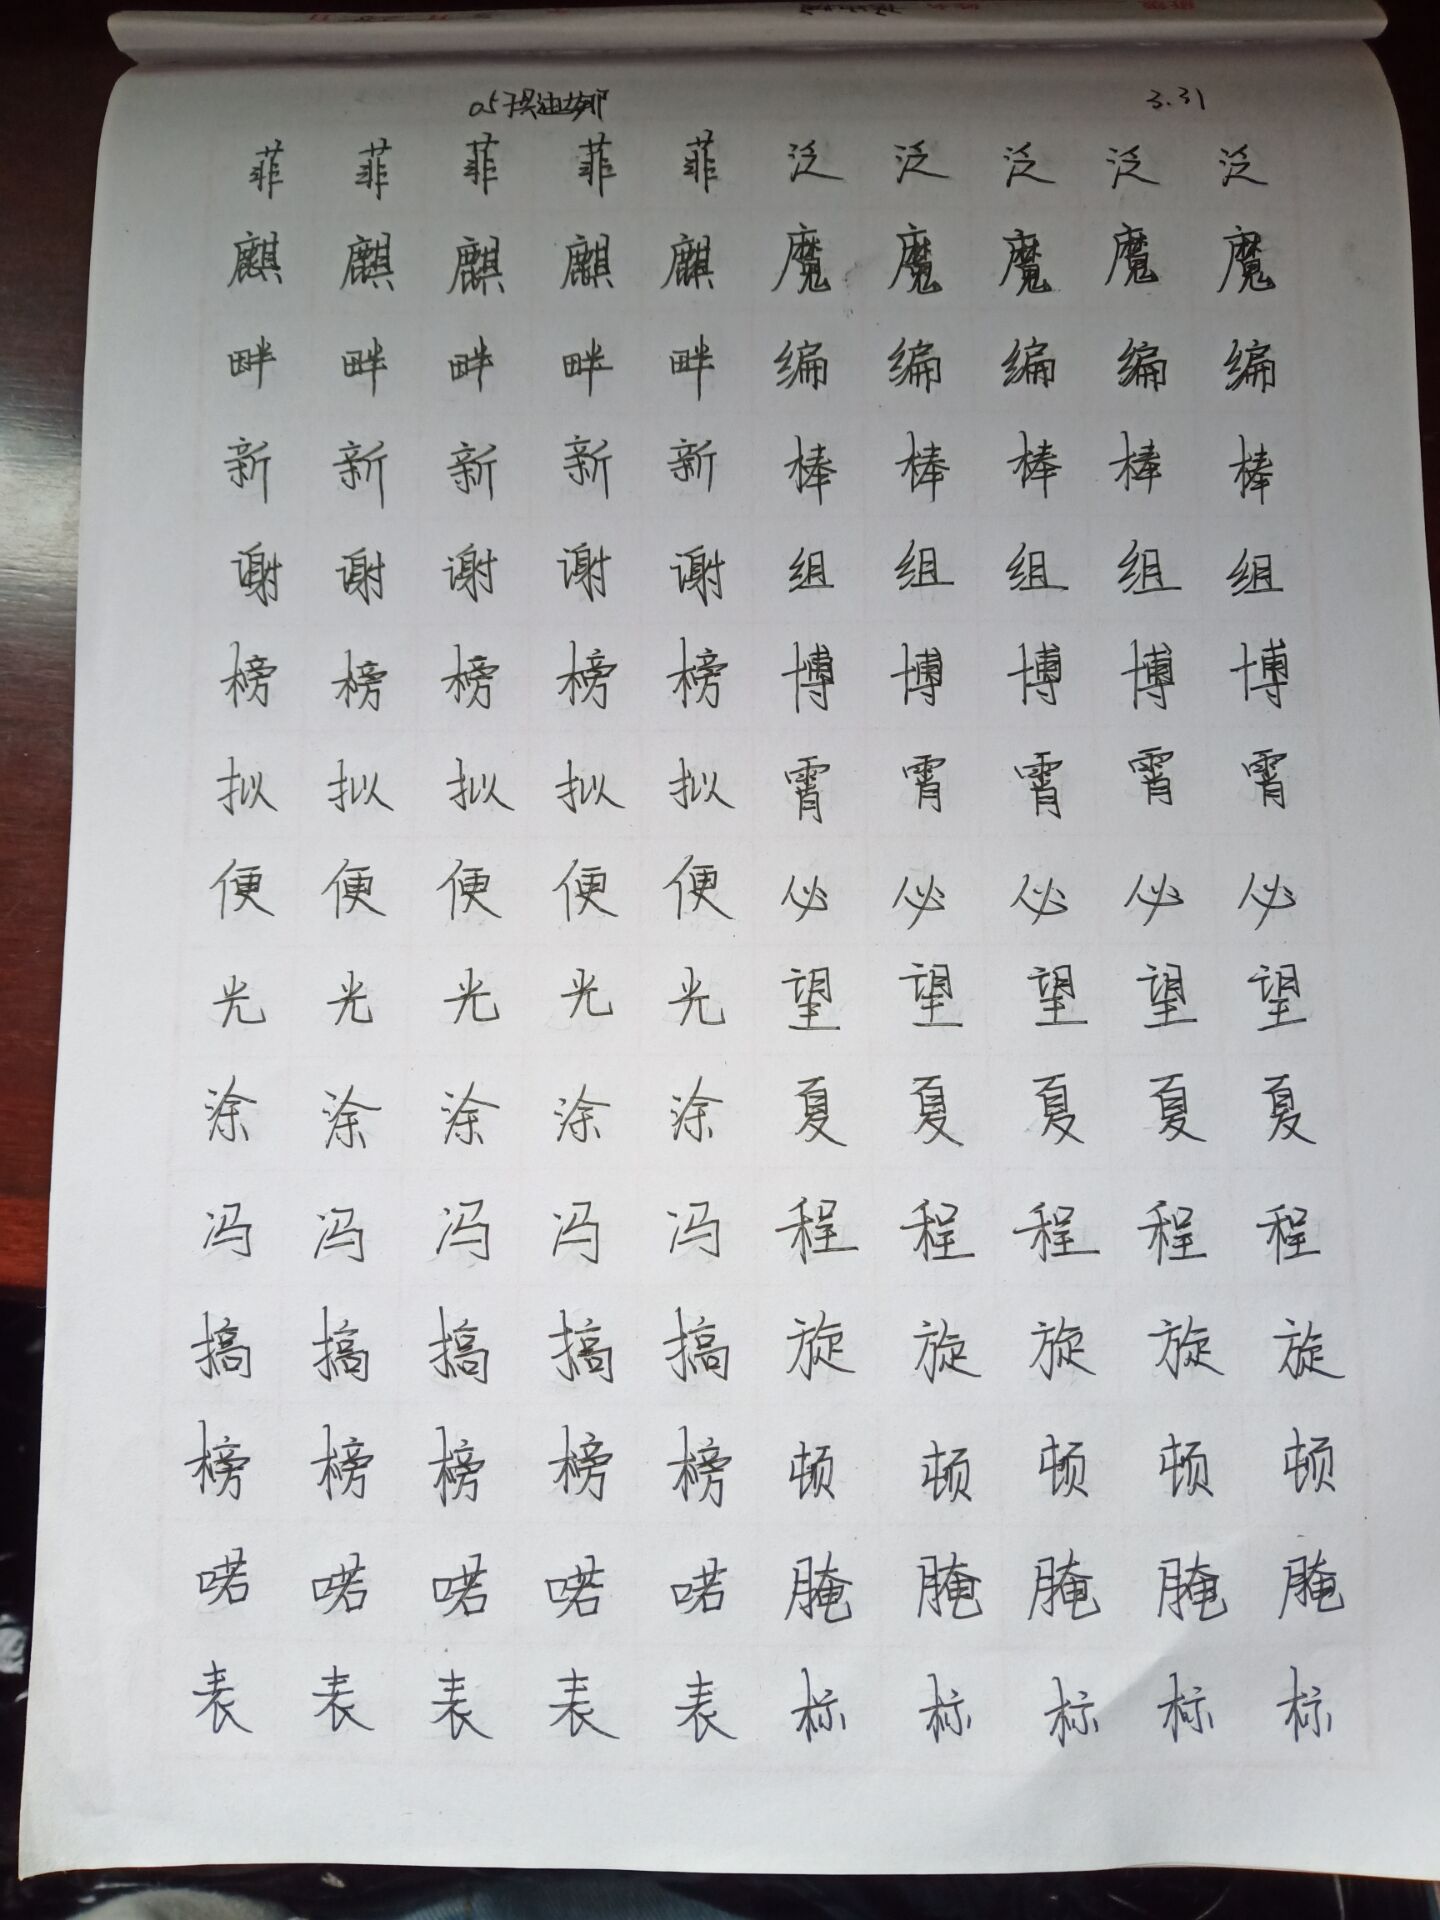 05 3.31
菲菲菲菲菲泛泛泛泛泛
麒麒麒麒麒魔魔魔魔魔
畔畔畔畔畔编编编编编
新新新新新棒棒棒棒棒
谢谢谢谢谢组组组组组
榜榜榜榜榜博博博博博
拟拟拟拟拟霄霄霄霄霄
便便便便便必必必必必
光光光光光望望望望望
涂涂涂涂涂夏夏夏夏夏
冯冯冯冯冯程程程程程
搞搞搞搞搞旋旋旋旋旋
榜榜榜榜榜顿顿顿顿顿
喏喏喏喏喏腌腌腌腌腌
表表表表表标标标标标